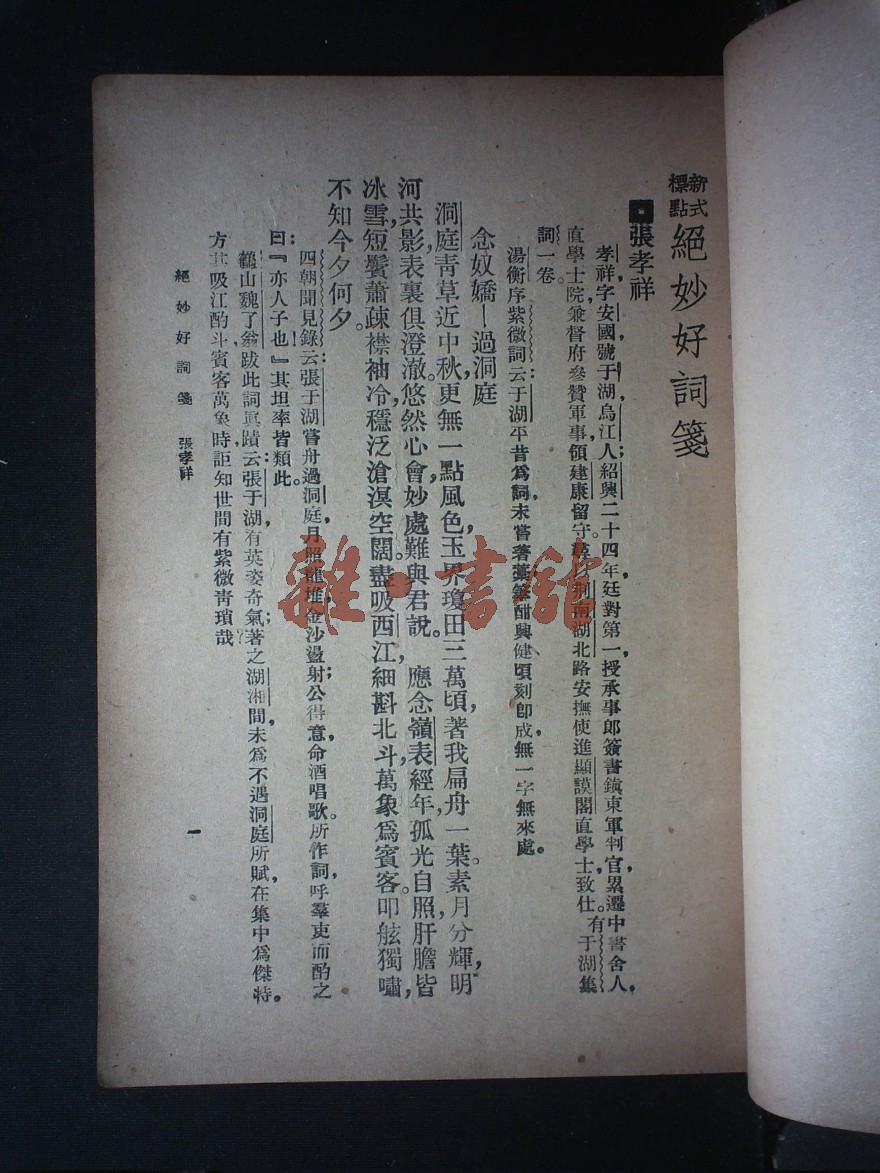 新式標點 絕妙好詞箋
張孝祥
孝祥字安國，號于湖，烏江人；紹興二十四年，廷對第一，授承事郎，簽書鎮東軍判官，累遷中書舍人，
直學士院，兼督府參贊軍事，領建康留守。尋以荊南湖北路安撫使進顯謨閣直學士，致仕。有于湖集
詞一卷。
湯衡序紫微詞云：于湖平昔為詞，未嘗著藁，酣興健，頃刻即成，無一字無來處。
念奴嬌—過洞庭
洞庭青草，近中秋，更無一點風色。玉界瓊田三萬頃，著我扁舟一葉。素月分輝，明
河共影，表裏俱澄澈。悠然心會，妙處難與君說。　應念嶺表經年，孤光自照，肝膽皆
冰雪，短鬢蕭疎襟袖冷，穩泛滄溟空闊。盡吸西江，細斟北斗，萬象為賓客。叩舷獨嘯，
不知今夕何夕。
四朝聞見錄云：張于湖嘗舟過洞庭，月照龍堆，金沙盪射；公得意，命酒唱歌。所作詞，呼羣吏而酌之
曰：『亦人子也。』其坦率皆類此。
鶴山魏了翁跋此詞真蹟云：張于湖有英姿奇氣；著之湖湘間，未為不遇，洞庭所賦，在集中為傑特。
方其吸江酌斗，賓客萬象，時詎知世間有紫微青瑣哉
絕妙好詞箋　張孝祥
一
雜·書館